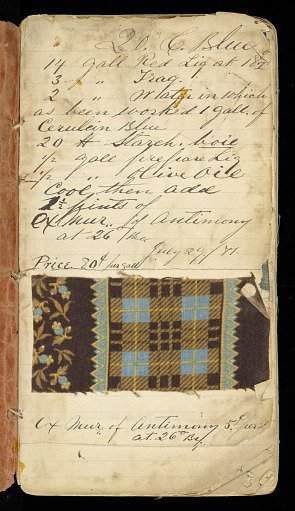 20. C. Blue
14 gall Red Liq at 18°
3 " Trag.
2 " Water in which
as been worked 1 gall. of
Cerulein Blue
20 lb Starch. boil
1/2 gall prepare Liq
1/2 " Olive Oil
Cool, then add
2 1/2 pints of
Ox Mur. of Antimony
at 26° Be.
July 29/71.
Price 80¢ per gall
Ox Mur of Antimony
at 26° Be